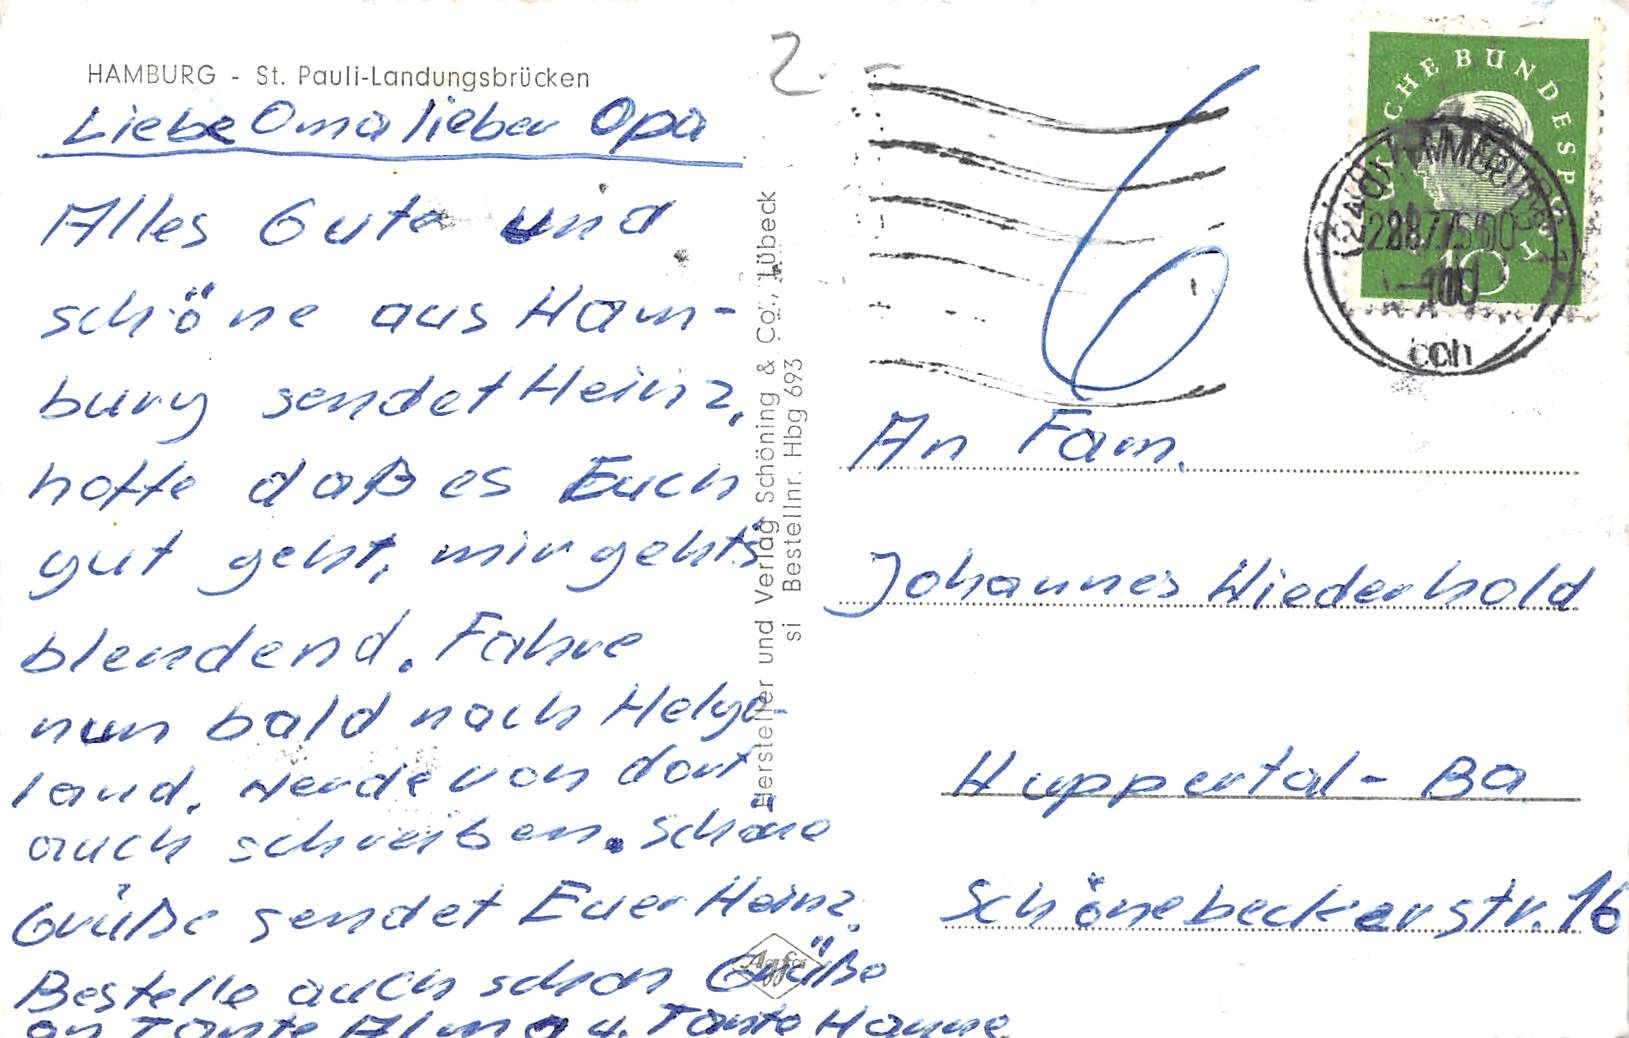 HAMBURG - St. Pauli-Landungsbrücken
Liebe Oma lieber Opa
Alles Gute und
schöne aus Ham-
burg sendet Heinz,
hoffe daß es Euch
gut geht, mir geht's
blendend. Fahre
nun bald nach Helgo-
land. Werde von dort
auch schreiben. Schöne
Grüße sendet Euer Heinz.
Bestelle auch schon Grüße
an Tante Alma u. Tante Hanne
Hersteller und Verlag Schöning & Co., Lübeck
si Bestellnr. Hbg 693
Agfa
2
6
CHE BUNDESP
10
An Fam.
Johannes Wiederhold
Wuppertal - Ba
Schönebeckerstr. 16